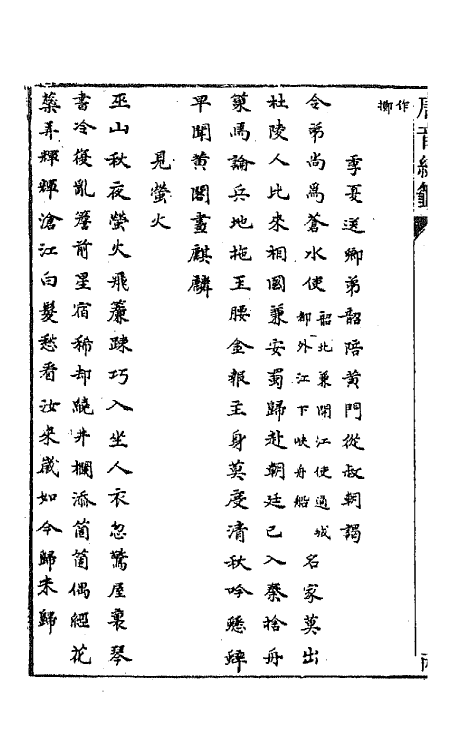 作
柳
季夏送鄉弟韶陪黃門從叔朝謁
令弟尚為蒼水使韶比兼開江使通成都外江下峽舟船名家莫出
杜陵人比來相國兼安蜀歸赴朝廷已入秦捨舟
策馬論兵地拖玉腰金報主身莫度清秋吟蟋蟀
早聞黃閣畫麒麟
見螢火
巫山秋夜螢火飛簾疎巧入坐人衣忽驚屋裏琴
書冷復亂簷前星宿稀却繞井欄添箇箇偶經花
蘂弄輝輝滄江白髮愁看汝來歲如今歸未歸
唐音統籤